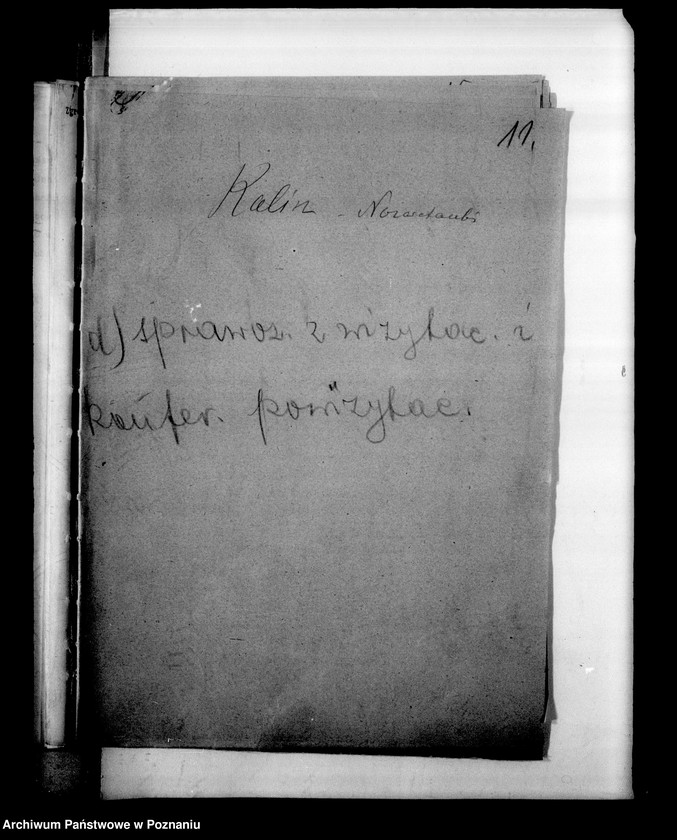 11.
Kalin -
d) sprawoz. z wizytac. i
konfer. powizytac.
Archiwum Państwowe w Poznaniu